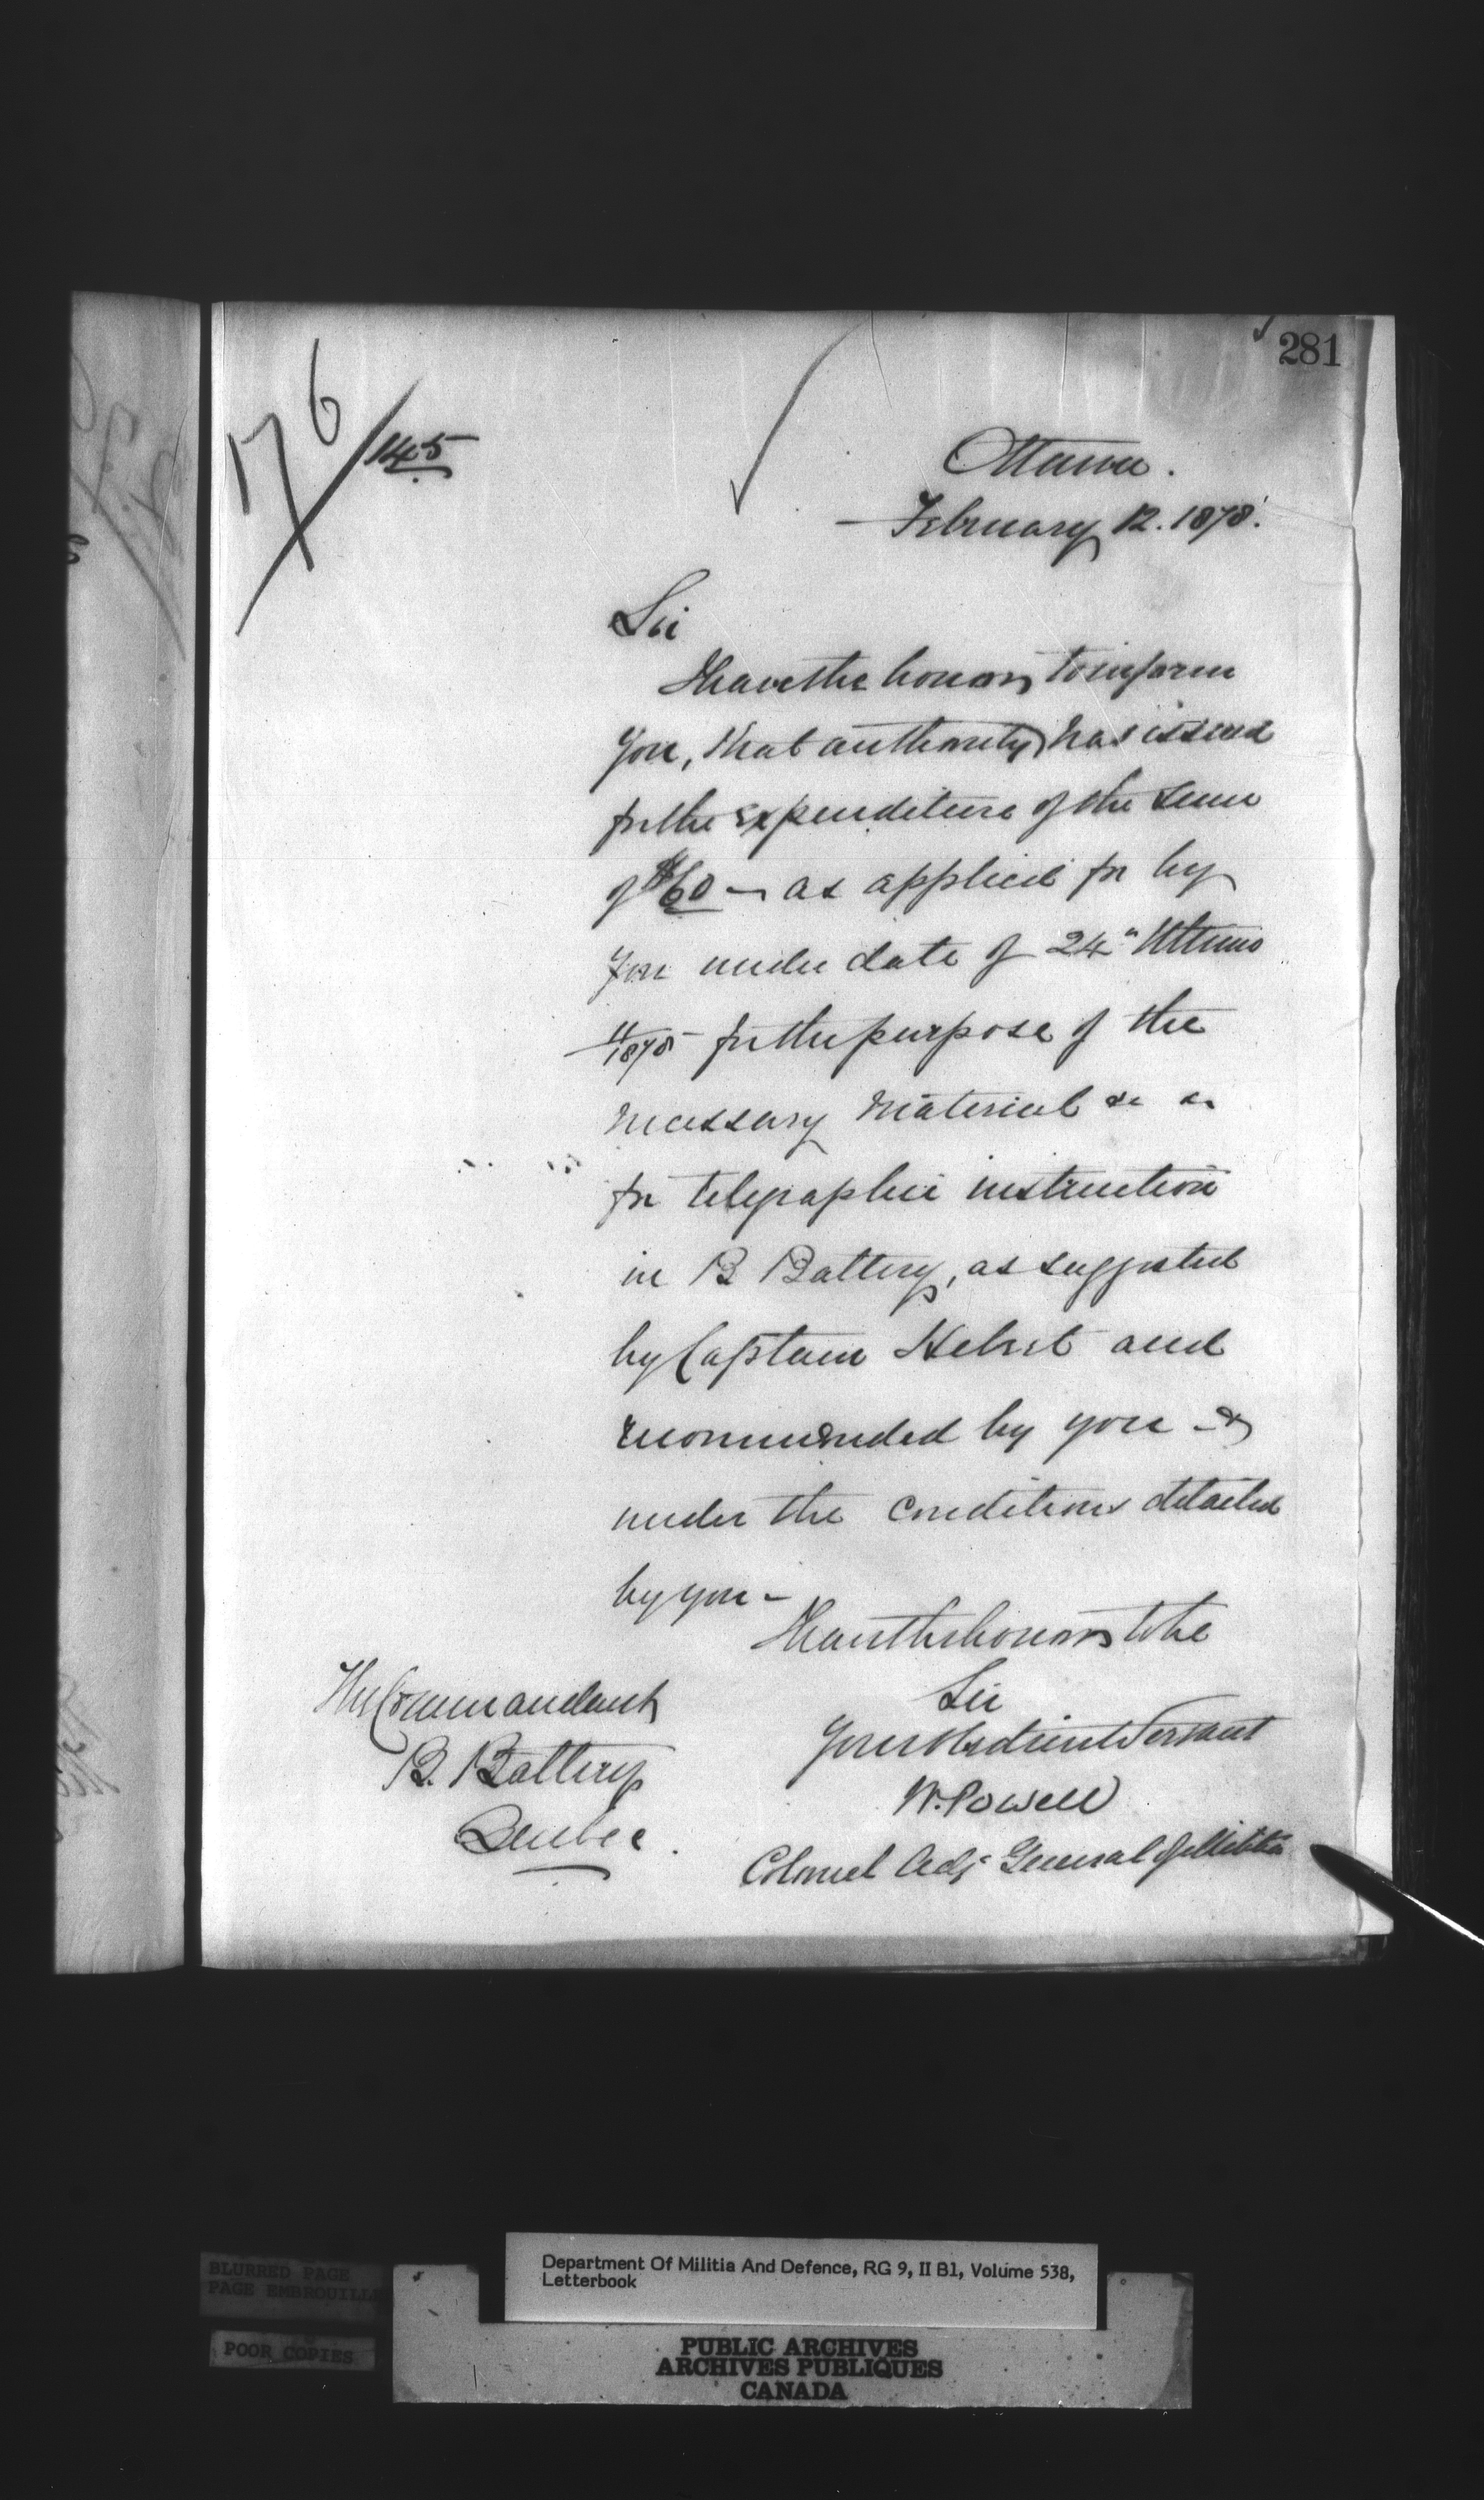 281
176/145
Ottawa.
February 12. 1878.
Sir
I have the honor to inform
you, that authority has issued
for the expenditure of the sum
of $60 - as applied for by
you under date of 24" Ultimo
11/1878 for the purpose of the
necessary Material &c &c
for telegraphic instruction
in B Battery, as suggested
by Captain Hébert and
recommended by you - &
under the conditions detailed
by you -
I have the honor to be
Sir
Your Obedient Servant
W. Powell
Colonel Adj General of Militia
The Commandant
B. Battery
Quebec.
Department Of Militia And Defence, RG 9, II B1, Volume 538,
Letterbook
BLURRED PAGE
PAGE EMBROUILLE
POOR COPIES
PUBLIC ARCHIVES
ARCHIVES PUBLIQUES
CANADA